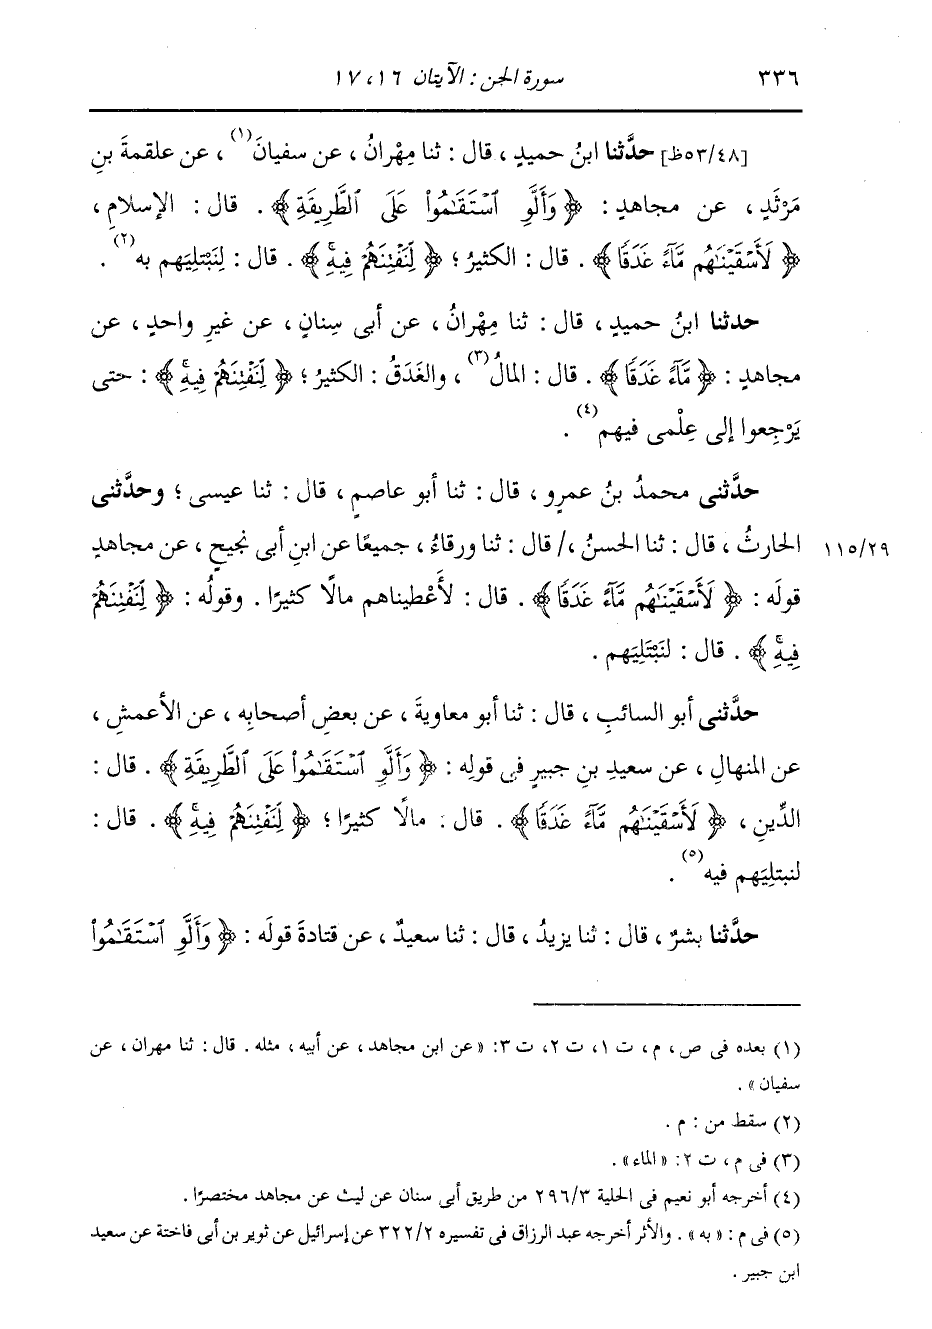 ٣٣٦ سورة الجن : الآيتان ١٦ ، ١٧
[٥٣/٤٨ظ] حدَّثنا ابنُ حميدٍ ، قال : ثنا مِهْرانُ ، عن سفيانَ(١) ، عن علقمةَ بنِ
مَرْثَدٍ ، عن مجاهدٍ : ﴿ وَأَلَّوِ ٱسْتَقَٰمُوا۟ عَلَى ٱلطَّرِيقَةِ ﴾ . قال : الإسلامِ ،
﴿ لَأَسْقَيْنَٰهُم مَّآءً غَدَقًا ﴾ . قال : الكثيرُ ؛ ﴿ لِّنَفْتِنَهُمْ فِيهِۚ ﴾ . قال : لِنَبْتلِيَهم به(٢) .
حدثنا ابنُ حميدٍ ، قال : ثنا مِهْرانُ ، عن أبى سِنانٍ ، عن غيرِ واحدٍ ، عن
مجاهدٍ : ﴿ مَّآءً غَدَقًا ﴾ . قال : المالُ(٣) ، والغَدَقُ : الكثيرُ ؛ ﴿ لِّنَفْتِنَهُمْ فِيهِۚ ﴾ : حتى
يَرْجِعوا إلى عِلْمى فيهم(٤) .
حدَّثنى محمدُ بنُ عمرٍو ، قال : ثنا أبو عاصمٍ ، قال : ثنا عيسى ؛ وحدَّثنى
الحارثُ ، قال : ثنا الحسنُ ،/ قال : ثنا ورقاءُ ، جميعًا عن ابنِ أبى نجيحٍ ، عن مجاهدٍ ١١٥/٢٩
قولَه : ﴿ لَأَسْقَيْنَٰهُم مَّآءً غَدَقًا ﴾ . قال : لأَعْطيناهم مالًا كثيرًا . وقولُه : ﴿ لِّنَفْتِنَهُمْ
فِيهِۚ ﴾ . قال : لنَبْتَلِيَهم .
حدَّثنى أبو السائبِ ، قال : ثنا أبو معاويةَ ، عن بعضِ أصحابِه ، عن الأعمشِ ،
عن المنهالِ ، عن سعيدِ بنِ جبيرٍ فى قولِه : ﴿ وَأَلَّوِ ٱسْتَقَٰمُوا۟ عَلَى ٱلطَّرِيقَةِ ﴾ . قال :
الدِّينِ ، ﴿ لَأَسْقَيْنَٰهُم مَّآءً غَدَقًا ﴾ . قال : مالًا كثيرًا ؛ ﴿ لِّنَفْتِنَهُمْ فِيهِۚ ﴾ . قال :
لنبتلِيَهم فيه(٥) .
حدَّثنا بشرٌ ، قال : ثنا يزيدُ ، قال : ثنا سعيدٌ ، عن قتادةَ قولَه : ﴿ وَأَلَّوِ ٱسْتَقَٰمُوا۟
(١) بعده فى ص ، م ، ت ١ ، ت ٢ ، ت ٣: «عن ابن مجاهد ، عن أبيه ، مثله . قال : ثنا مهران ، عن
سفيان» .
(٢) سقط من : م .
(٣) فى م ، ت ٢: «الماء» .
(٤) أخرجه أبو نعيم فى الحلية ٢٩٦/٣ من طريق أبى سنان عن ليث عن مجاهد مختصرًا .
(٥) فى م : «به» . والأثر أخرجه عبد الرزاق فى تفسيره ٣٢٢/٢ عن إسرائيل عن ثوير بن أبى فاختة عن سعيد
ابن جبير .